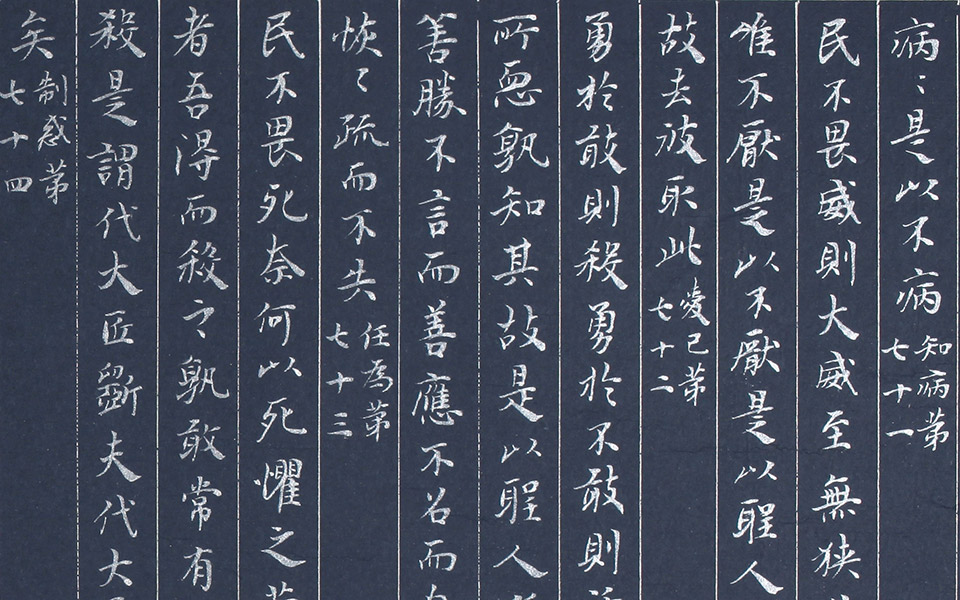 病〻是以不病知病第七十一
民不畏威則大威至無狭
唯不厭是以不厭是以聖人
故去彼取此愛己第七十二
勇於敢則殺勇於不敢則
所惡孰知其故是以聖人
善勝不言而善應不召而
恢〻疏而不失任為第七十三
民不畏死奈何以死懼之
者吾得而殺之孰敢常有
殺是謂代大匠斲夫代大
矣制惑第七十四